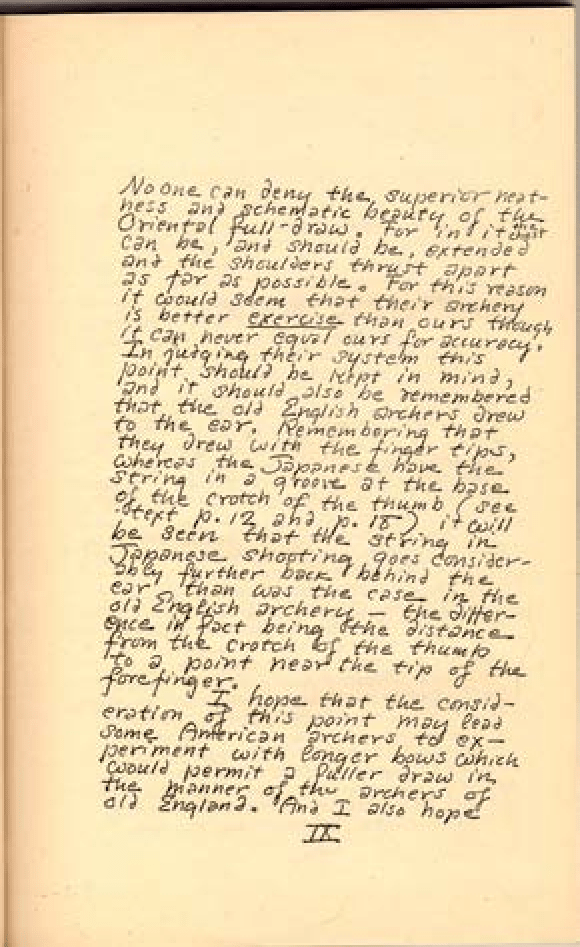 No one can deny the superior neat-
ness and schematic beauty of the
Oriental full-draw. For in it the chest
can be, and should be, extended
and the shoulders thrust apart
as far as possible. For this reason
it would seem that their archery
is better exercise than ours though
it can never equal ours for accuracy.
In judging their system this
point should be kept in mind,
and it should also be remembered
that the old English archers drew
to the ear. Remembering that
they drew with the finger tips,
whereas the Japanese have the
string in a groove at the base
of the crotch of the thumb (see
text p. 12 and p. 18), it will
be seen that the string in
Japanese shooting goes consider-
ably further back behind the
ear, than was the case in the
old English archery — the differ-
ence in fact being the distance
from the crotch of the thumb
to a point near the tip of the
forefinger.
I hope that the consid-
eration of this point may lead
some American archers to ex-
periment with longer bows which
would permit a fuller draw in
the manner of the archers of
old England. And I also hope
IX